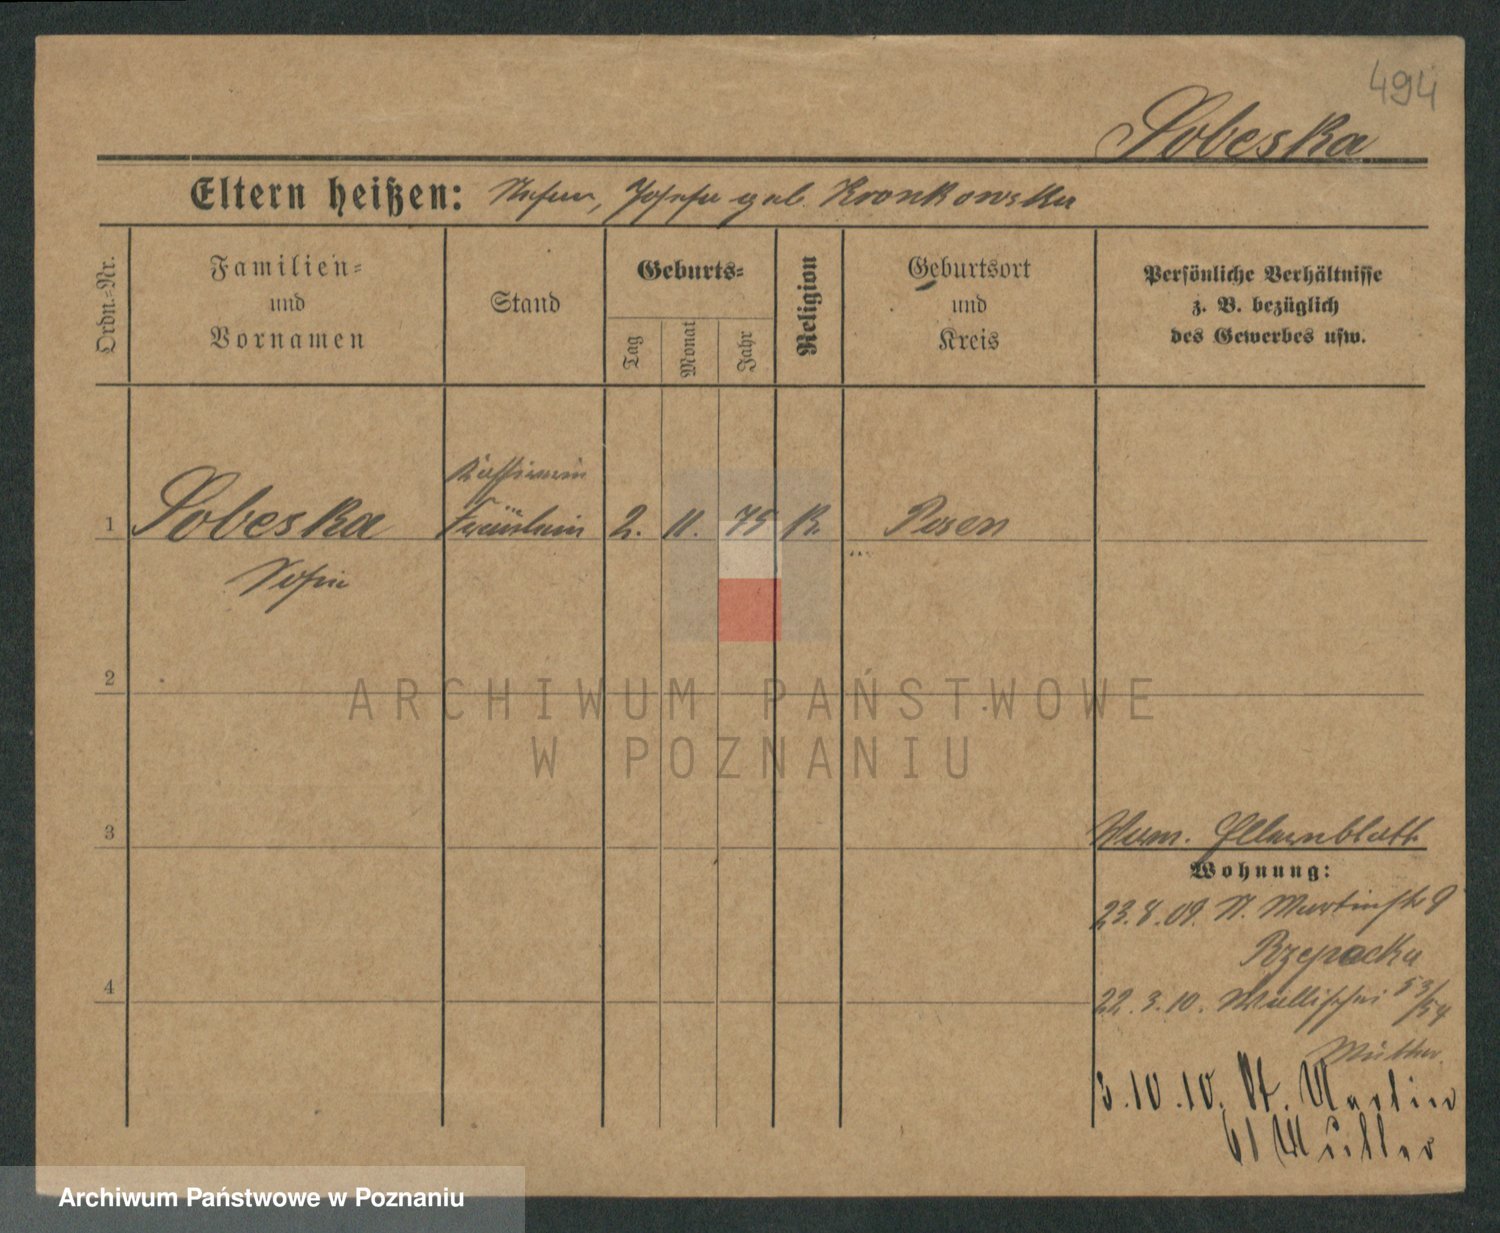 494
Sobeska
Eltern heißen: Stefan, Josefa geb. Kronkowska
Ordn.=Nr.
Familien=
und
Vornamen
Stand
Geburts=
Tag
Monat
Jahr
Religion
Geburtsort
und
Kreis
Persönliche Verhältnisse
z. B. bezüglich
des Gewerbes usw.
Kassiererin
1 Sobeska Fräulein 2. 11. 79 K. Posen
Sofie
2
ARCHIWUM PAŃSTWOWE
W POZNANIU
3
Elternblatt
Wohnung:
23.8.09. St. Martinstr 9
Rzepecka
4
22.3.10. Wallischei 53/54
3.10.10. St. Martin
61 Müller
Archiwum Państwowe w Poznaniu